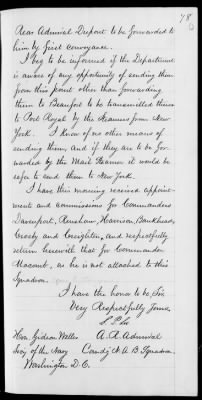 78
Rear Admiral Dupont to be forwarded to
him by first conveyance.
I beg to be informed if the Department
is aware of any opportunity of sending them
from this point other than forwarding
them to Beaufort to be transmitted thence
to Port Royal by the steamers from New
York. I know of no other means of
sending them, and if they are to be for-
warded by the Mail steamer it would be
safer to send them to New York.
I have this morning received appoint-
ments and commissions for Commanders
Davenport, Renshaw, Harrison, Bankhead,
Crosby and Creighton, and respectfully
return herewith that for Commander
Macomb, as he is not attached to this
Squadron.
I have the honor to be, Sir,
Very Respectfully Yours,
S. P. Lee
Hon. Gideon Welles A. R. Admiral
Secy of the Navy Comdg N. A. B. Squadron.
Washington D.C.